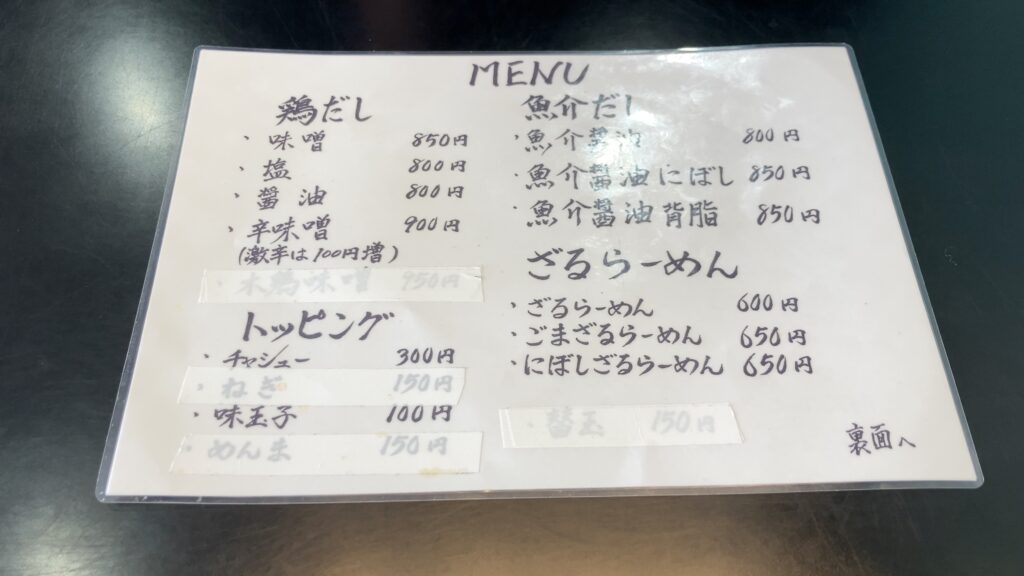 MENU
鶏だし
・味噌 850円
・塩 800円
・醤油 800円
・辛味噌 900円
(激辛は100円増)
味噌 950円
トッピング
・チャシュー 300円
・ねぎ 150円
・味玉子 100円
・めんま 150円
魚介だし
・魚介醤油 800円
・魚介醤油にぼし 850円
・魚介醤油背脂 850円
ざるらーめん
・ざるらーめん 600円
・ごまざるらーめん 650円
・にぼしざるらーめん 650円
・替玉 150円
裏面へ